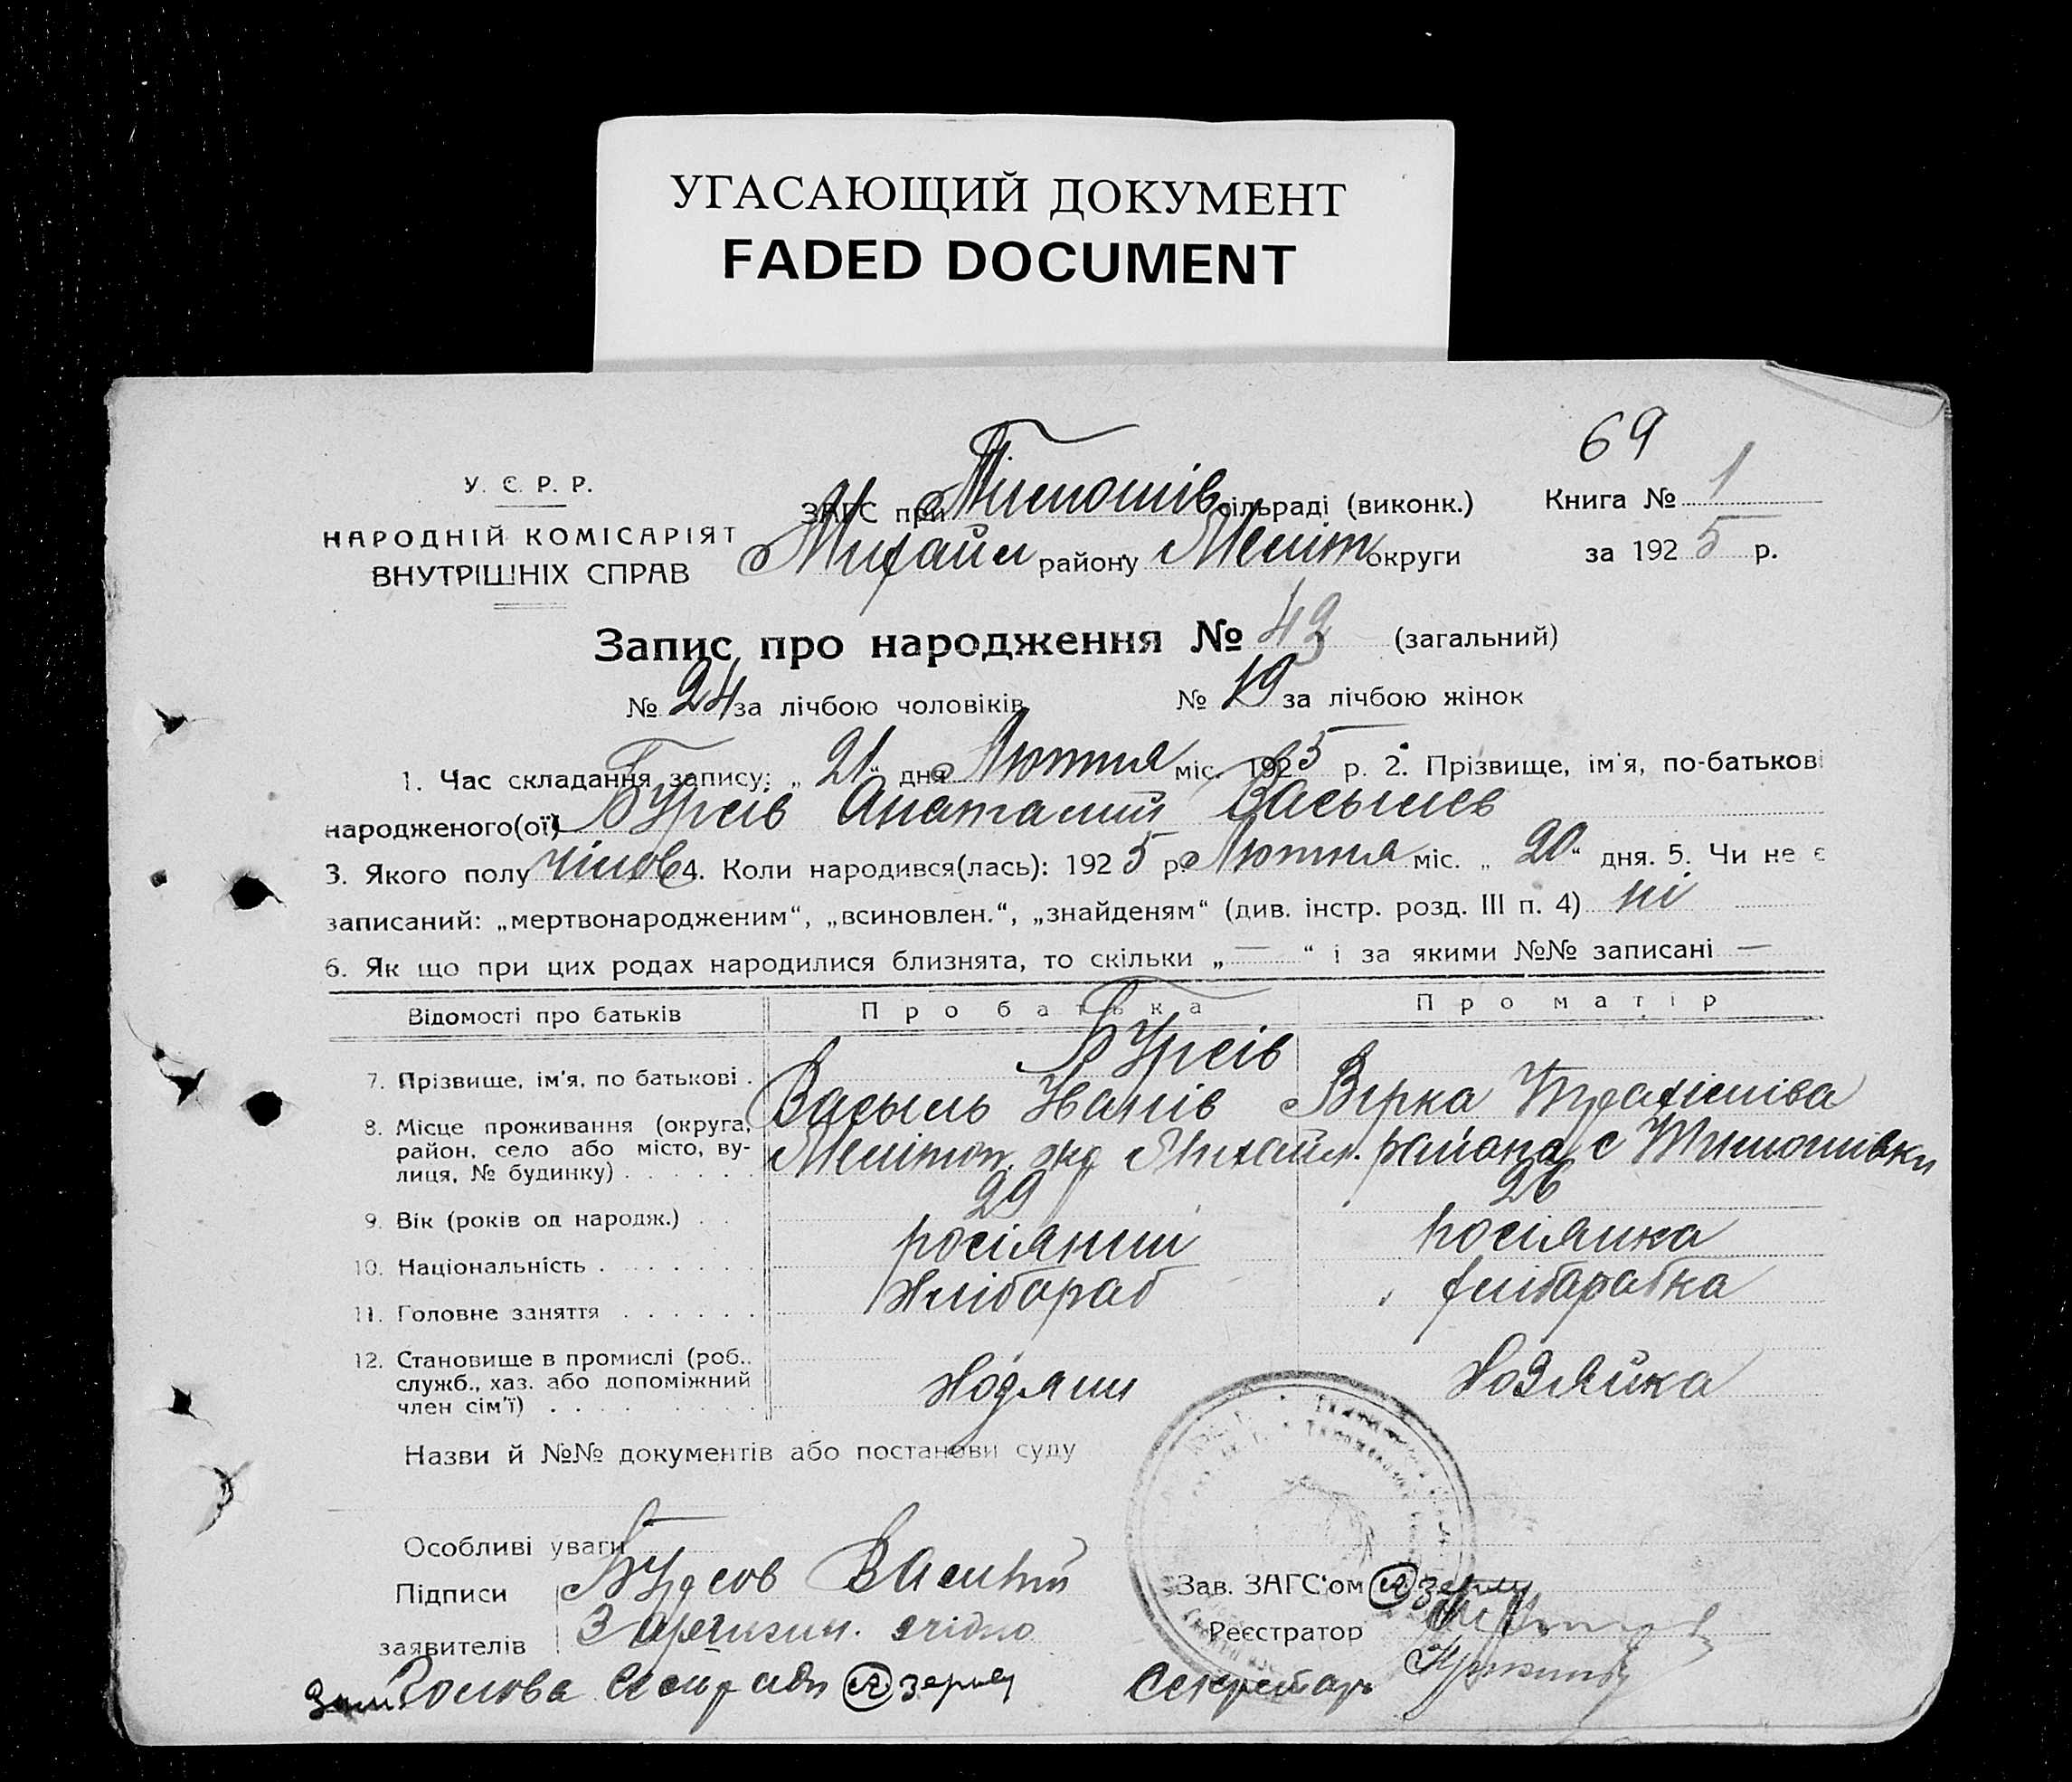 УГАСАЮЩИЙ ДОКУМЕНТ
FADED DOCUMENT
69
У. Є. Р. Р.
НАРОДНІЙ КОМІСАРІЯТ
ВНУТРІШНІХ СПРАВ
ЗАГС при Тімошів сільраді (виконк.)
Михайл району Меліт округи
Книга № 1
за 1925 р.
Запис про народження № 43 (загальний)
№ 24 за лічбою чоловіків № 19 за лічбою жінок
1. Час складання запису: „ 21 “ дня Лютня міс. 1925 р. 2. Прізвище, ім'я, по-батькові
народженого(ої) Бурсів Анаталий Васылев
3. Якого полу чілов 4. Коли народився(лась): 1925 р. Лютня міс. „ 20 “ дня. 5. Чи не є
записаний: „мертвонародженим“, „всиновлен.“, „знайденям“ (див. інстр. розд. III п. 4) ні
6. Як що при цих родах народилися близнята, то скільки „ — “ і за якими №№ записані —
Відомості про батьків Про батька Про матір
Бурсів
7. Прізвище, ім'я, по батькові . Васыль Иванів Вірка
8. Місце проживання (округа, район, село або місто, вулиця, № будинку) . . . . . . Мелітоп. окр Михайл. района с Тимошівки
9. Вік (років од народж.) . . 29 26
10. Національність . . . . . . . росіяний росіянка
11. Головне заняття . . . . . . хлібораб хлібарабка
12. Становище в промислі (роб., служб., хаз. або допоміжний член сім'ї) . . . . . . . . . Ходяин Хозяйка
Назви й №№ документів або постанови суду
Особливі уваги
Підписи Бурсов Василий
заявителів З орегинал. згідно
Зав. ЗАГС'ом
Реєстратор
Зам Голова Сельради
Секретарь